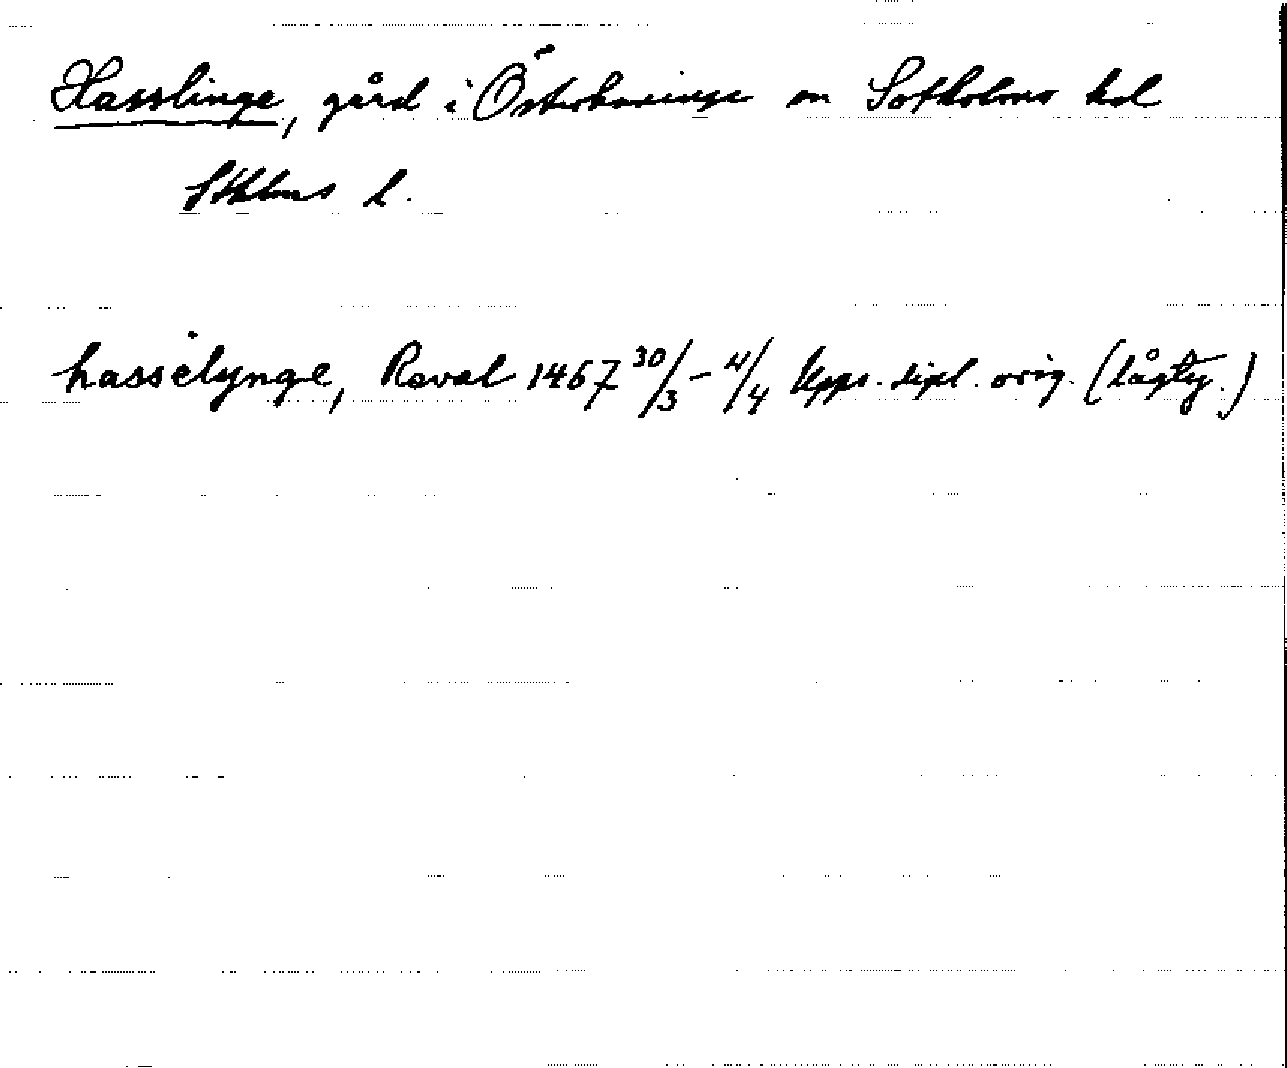 Hasslinge, gård i Österhaninge sn Sotholms hd
Sthlms l.
hasselynge, Reval 1467 30/3 – 4/4 Upps. dipl. orig. (lågty.)